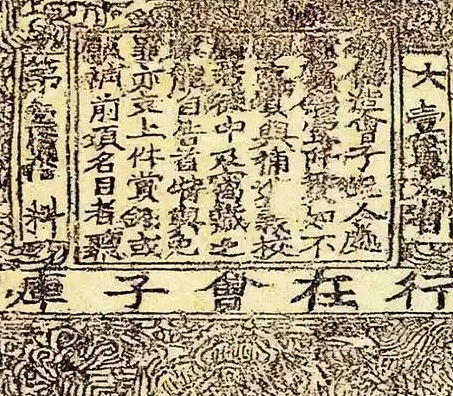 大壹貫文省
敕僞造會子犯人處
斬賞錢壹阡貫如不
願支賞與補進義校
尉若徒中及窩藏之
家能自告首特與免
罪亦支上件賞錢或
願補前項名目者聽
第壹佰拾料
行在會子庫